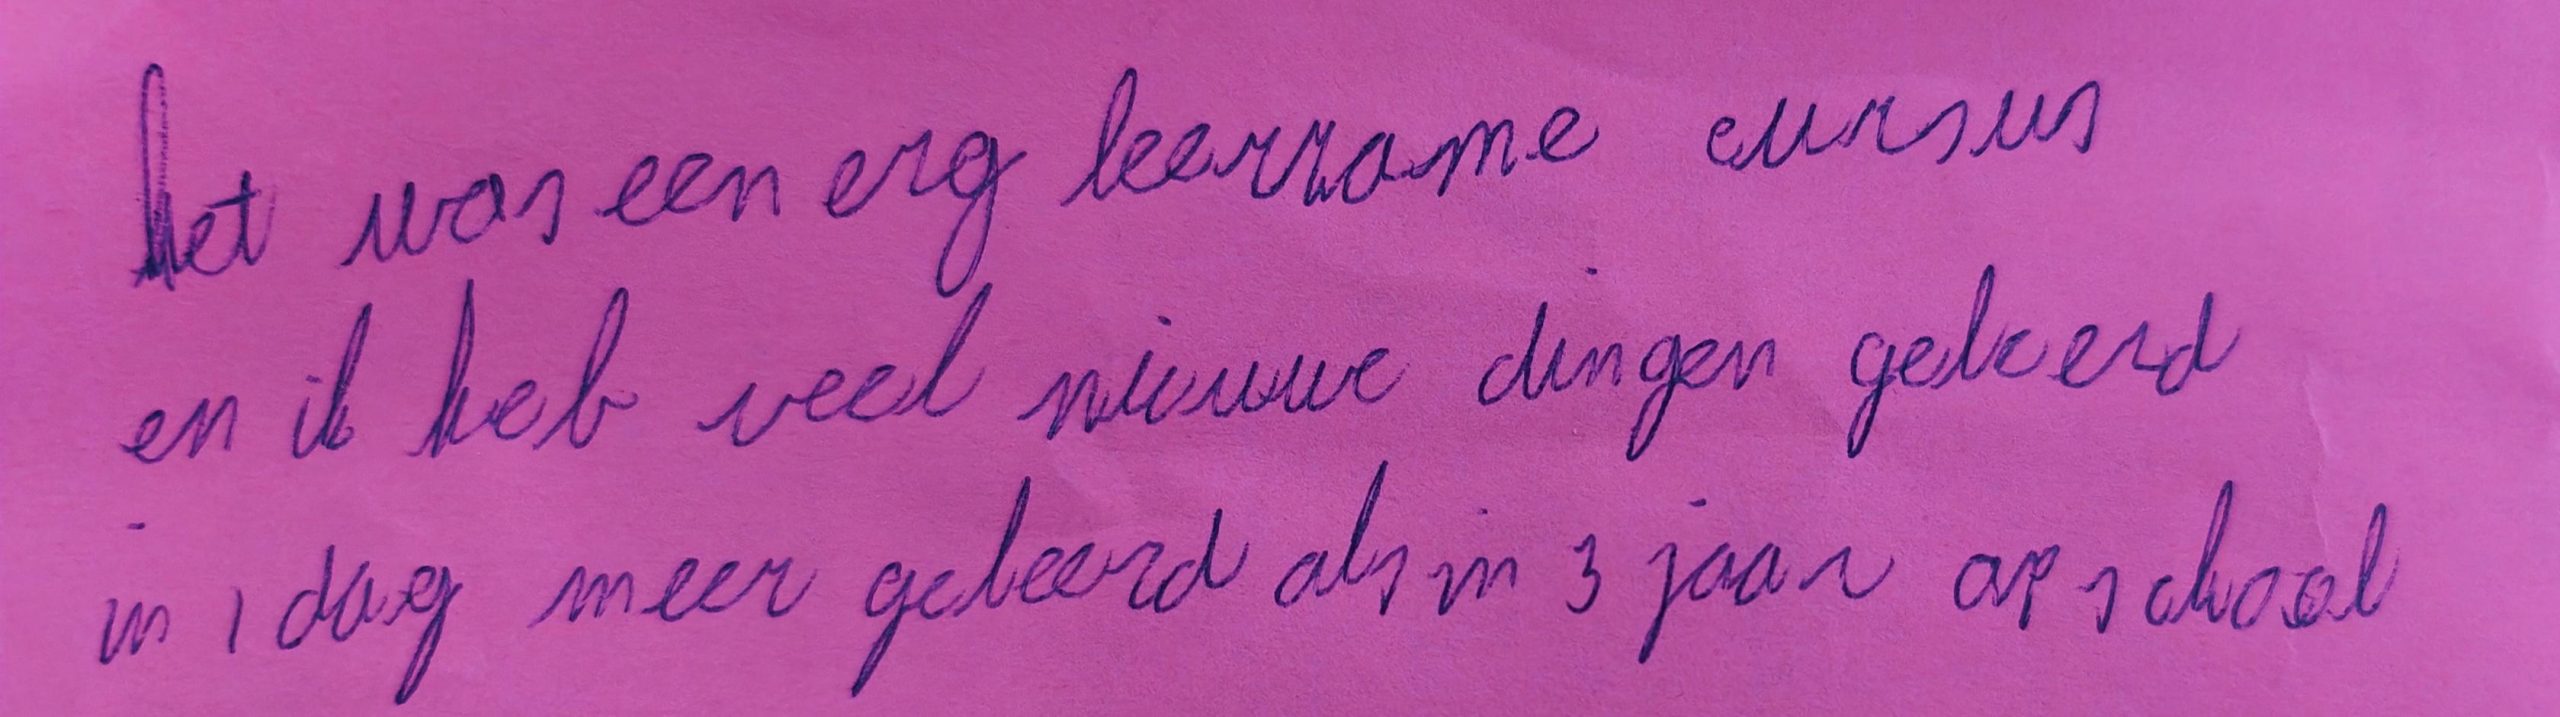 het was een erg leerzame cursus
en ik heb veel nieuwe dingen geleerd
in 1 dag meer geleerd als in 3 jaar op school